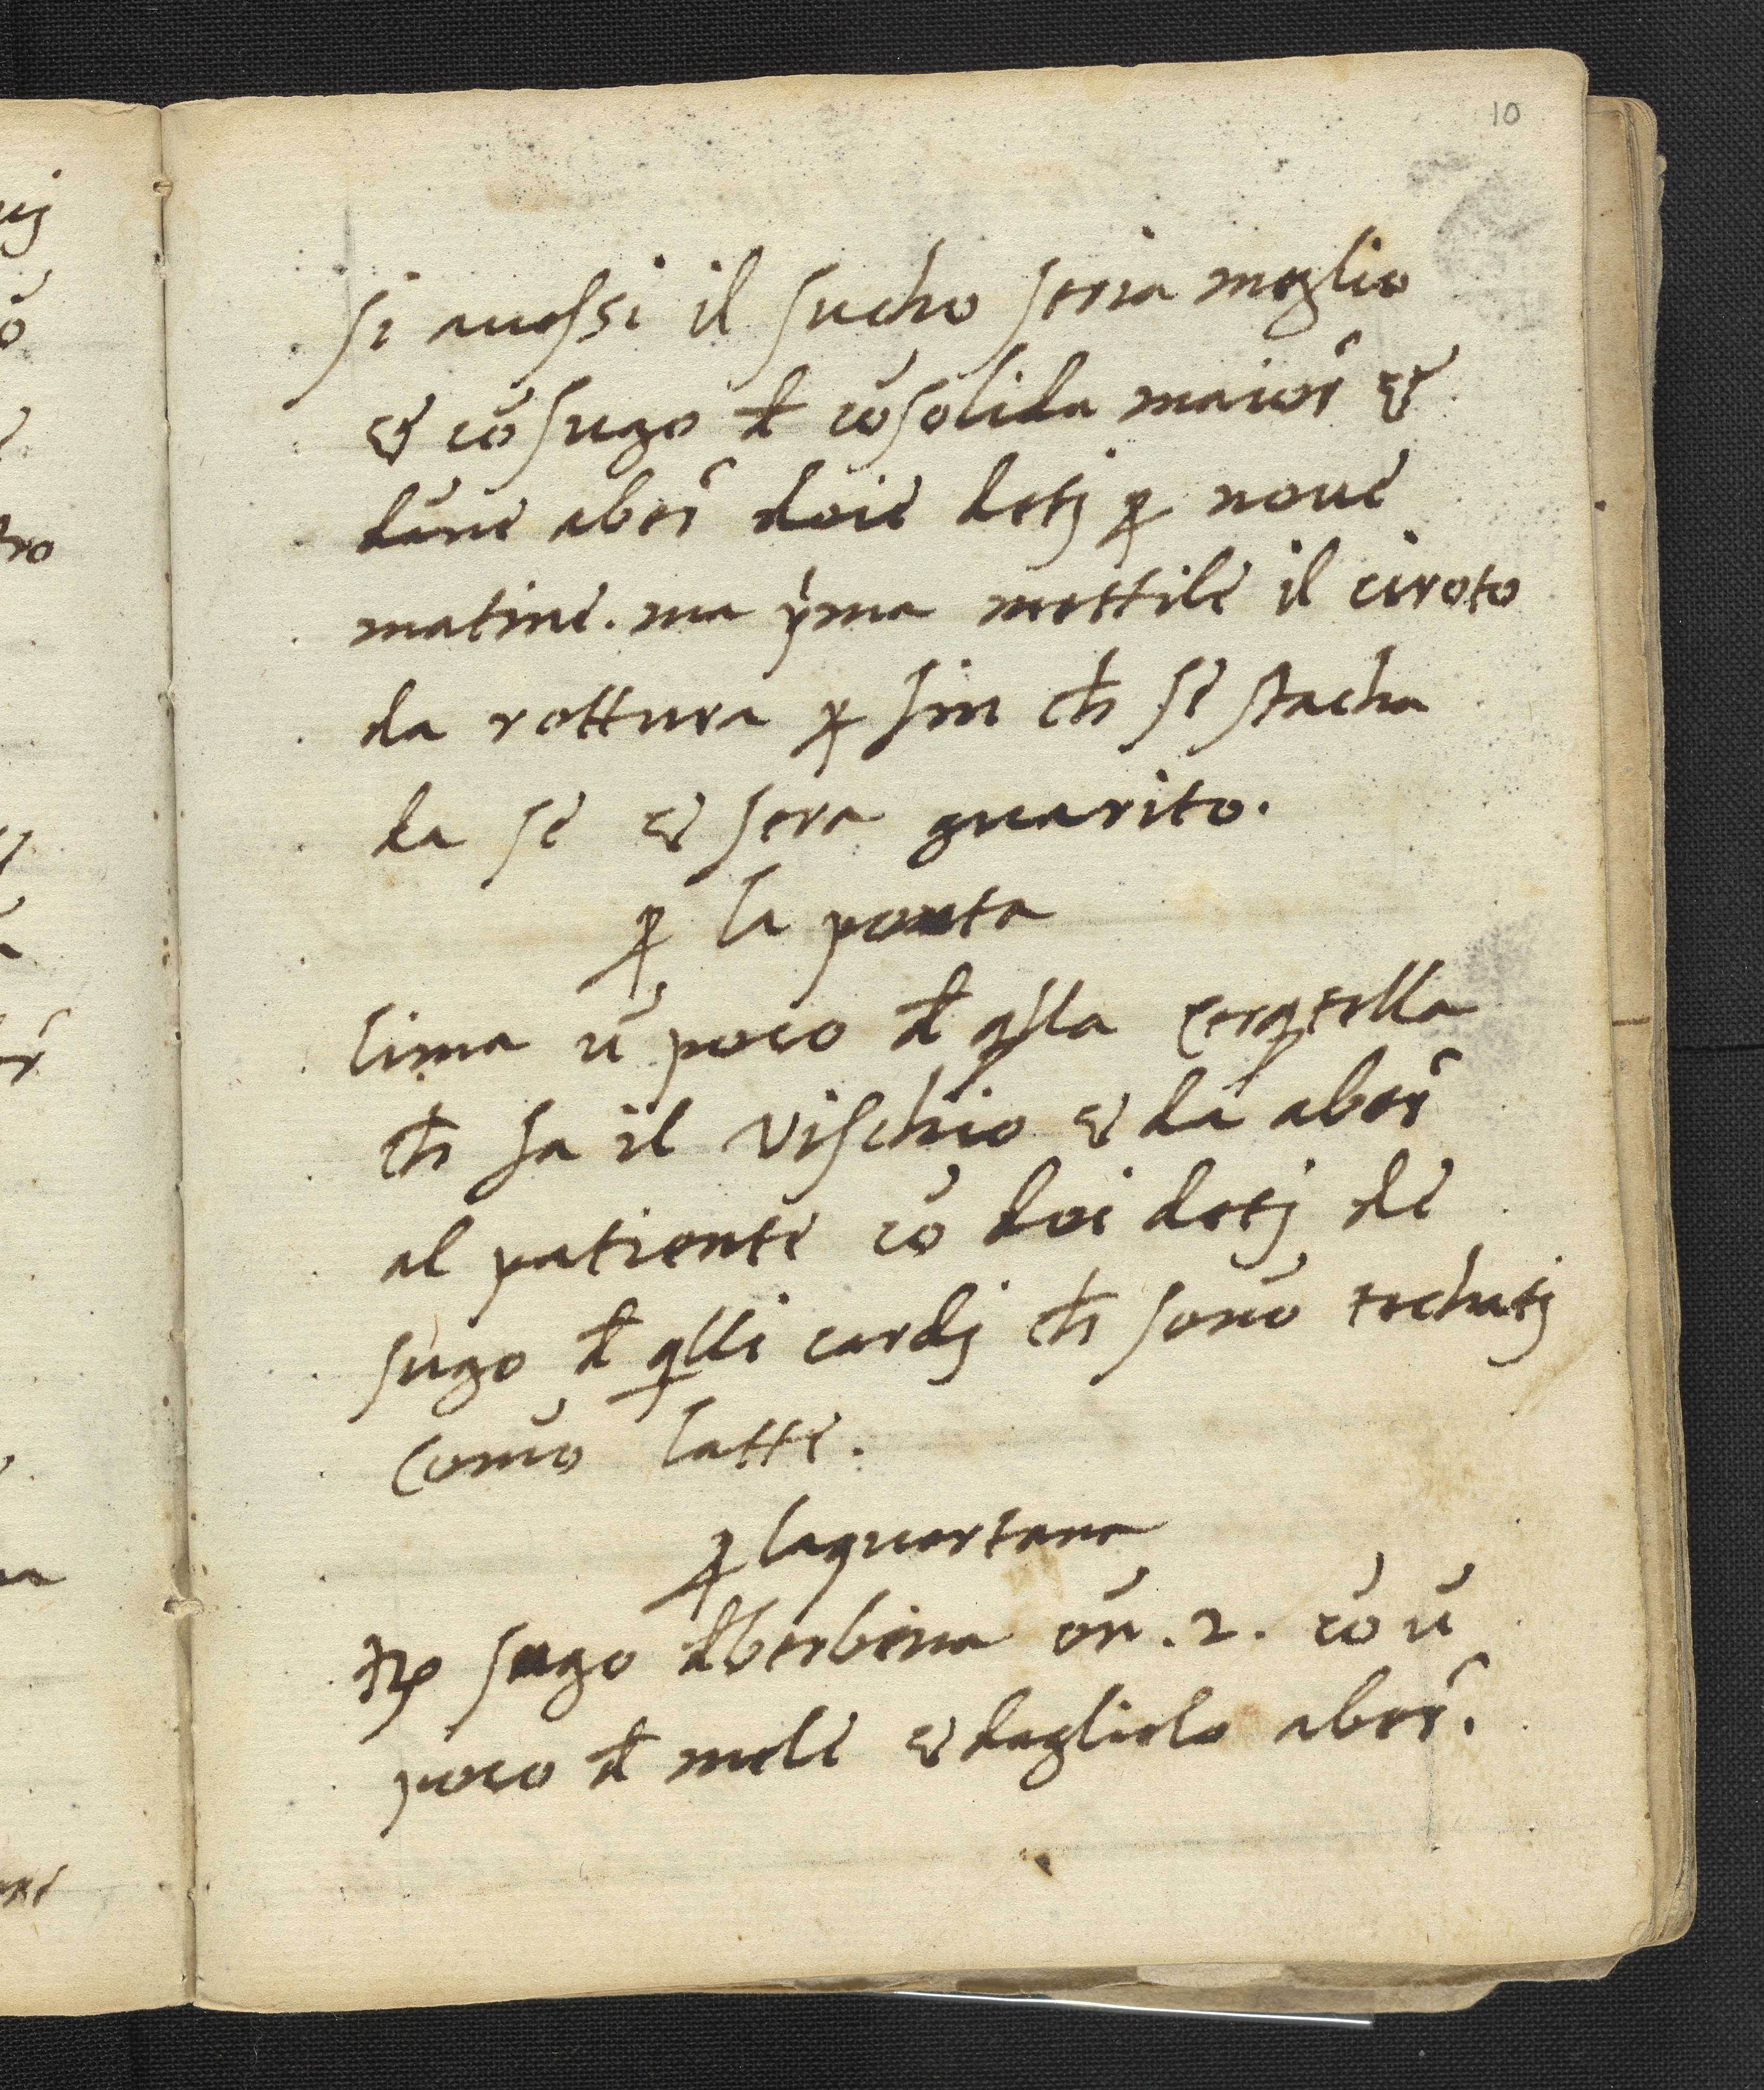 10
si auessi il sucho seria meglio
& cō sugo đ cōsolida maior̃ &
dāne aber̃ doie detj ꝑ noue
matine. ma pͥma mettile il ciroto
da rottura ꝑ fin ch̄ se stacha
da se & sera guarito.
ꝑ la ponta
lima ū poco đ q̃lla cerq̃tella
ch̄ fa il vischio & da aber̃
al patiente cō doi detj de
sugo đ q̃lli cardj ch̄ sonō tochatj
comō latte.
ꝑ laquartana
Rp sugo đ berbena on̄. 2. cō ū
poco đ mele & daglielo aber̃.